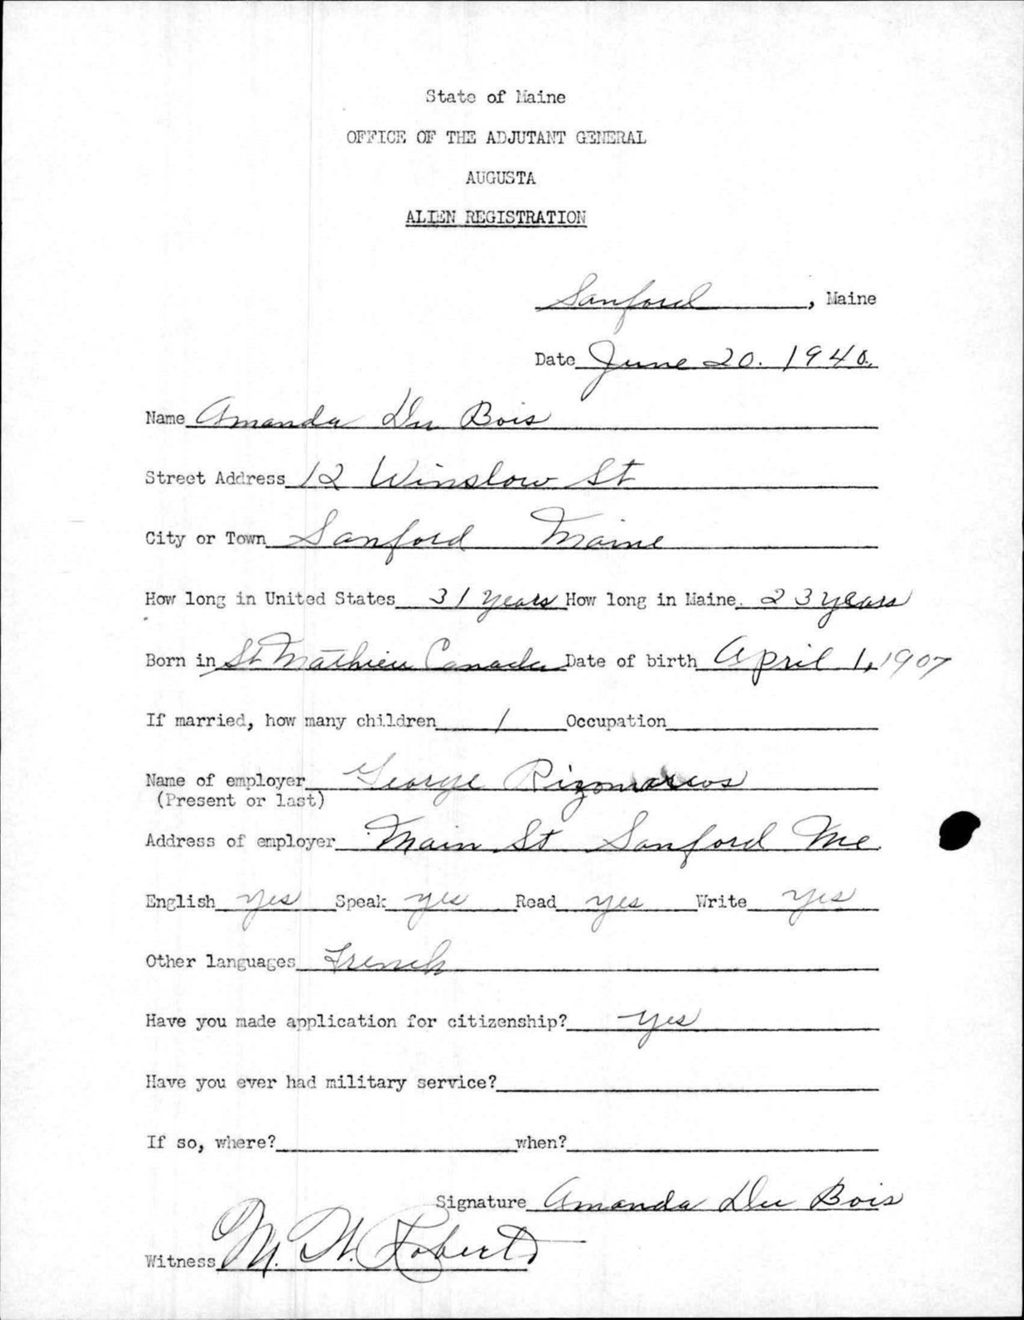 State of Maine
OFFICE OF THE ADJUTANT GENERAL
AUGUSTA
ALIEN REGISTRATION
Sanford, Maine
Date June 20. 1940.
Name Amanda Du Bois
Street Address 12 Winslow St
City or Town Sanford Maine
How long in United States 31 years How long in Maine. 23 years
Born in St Mathieu Canada Date of birth April 1, 1907
If married, how many children 1 Occupation
Name of employer George
(Present or last)
Address of employer Main St Sanford Me.
English yes Speak yes Read yes Write yes
Other languages French
Have you made application for citizenship? yes
Have you ever had military service?
If so, where? when?
Signature Amanda Du Bois
Witness M. H. Roberts